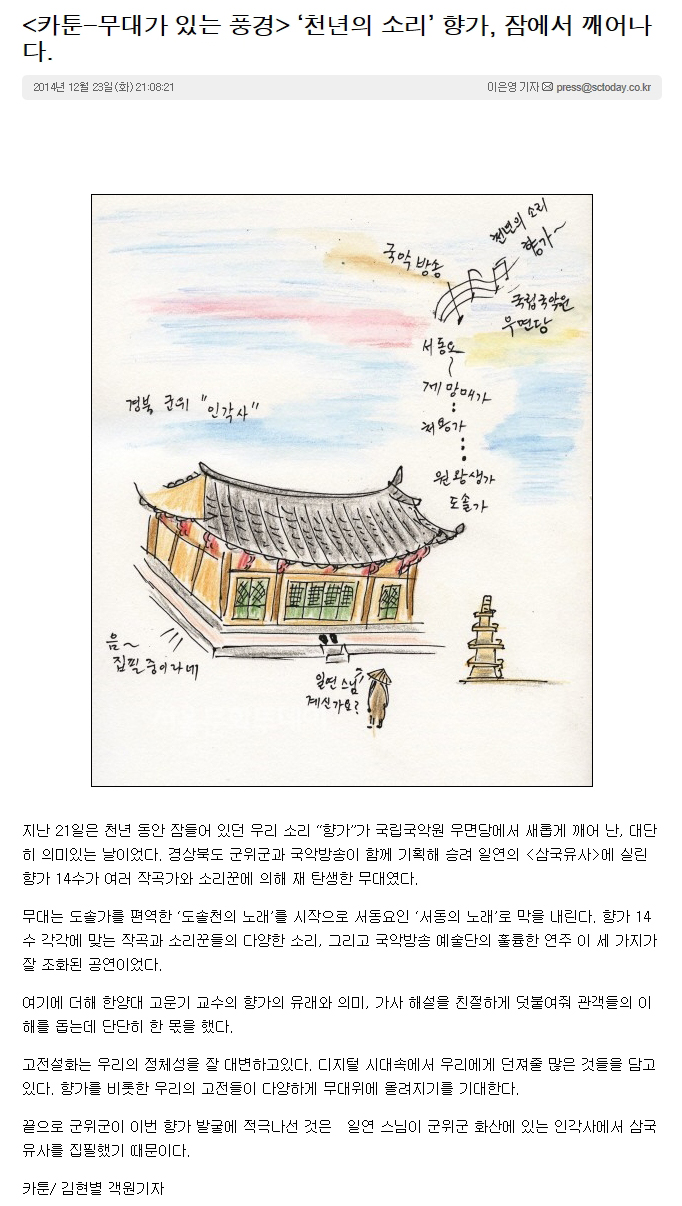 <카툰-무대가 있는 풍경> ‘천년의 소리’ 향가, 잠에서 깨어나
다.
2014년 12월 23일 (화) 21:08:21
이은영 기자 press@sctoday.co.kr
천년의 소리
향가~
국악 방송
국립국악원
우면당
서동요
제 망매가
처용가
원왕생가
도솔가
경북 군위 "인각사"
음~
집필 중이라네
일연 스님
계신가요?
지난 21일은 천년 동안 잠들어 있던 우리 소리 “향가”가 국립국악원 우면당에서 새롭게 깨어 난, 대단
히 의미있는 날이었다. 경상북도 군위군과 국악방송이 함께 기획해 승려 일연의 <삼국유사>에 실린
향가 14수가 여러 작곡가와 소리꾼에 의해 재 탄생한 무대였다.
무대는 도솔가를 편역한 ‘도솔천의 노래’를 시작으로 서동요인 ‘서동의 노래’로 막을 내린다. 향가 14
수 각각에 맞는 작곡과 소리꾼들의 다양한 소리, 그리고 국악방송 예술단의 훌륭한 연주 이 세 가지가
잘 조화된 공연이었다.
여기에 더해 한양대 고운기 교수의 향가의 유래와 의미, 가사 해설을 친절하게 덧붙여줘 관객들의 이
해를 돕는데 단단히 한 몫을 했다.
고전설화는 우리의 정체성을 잘 대변하고있다. 디지털 시대속에서 우리에게 던져줄 많은 것들을 담고
있다. 향가를 비롯한 우리의 고전들이 다양하게 무대위에 올려지기를 기대한다.
끝으로 군위군이 이번 향가 발굴에 적극나선 것은 일연 스님이 군위군 화산에 있는 인각사에서 삼국
유사를 집필했기 때문이다.
카툰/ 김현별 객원기자